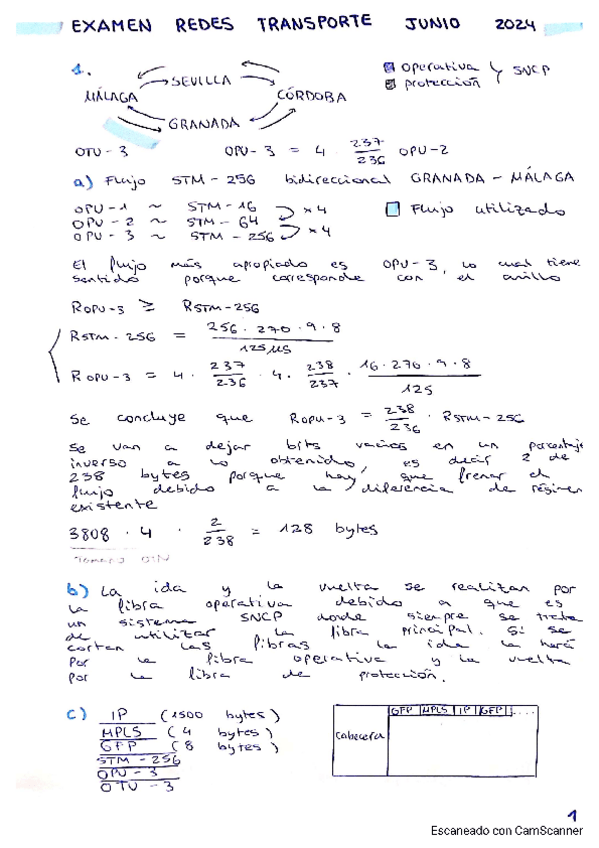 EXAMEN REDES TRANSPORTE JUNIO 2024
1.
SEVILLA
MÁLAGA
CÓRDOBA
GRANADA
operativa
protección
SNCP
OTU-3
OPU-3 = 4 · 237/236 OPU-2
a) Flujo STM-256 bidireccional GRANADA-MÁLAGA
OPU-1 ~ STM-16
OPU-2 ~ STM-64
OPU-3 ~ STM-256
x4
x4
Flujo utilizado
El flujo más apropiado es OPU-3, lo cual tiene
sentido porque corresponde con el anillo
ROPU-3 ≥ RSTM-256
RSTM-256 = 256·270·9·8 / 125µs
ROPU-3 = 4 · 237/236 · 4 · 238/237 · 16·270·9·8 / 125
Se concluye que ROPU-3 = 238/236 · RSTM-256
Se van a dejar bits vacíos en un porcentaje
inverso a lo obtenido, es decir 2 de
238 bytes porque hay que frenar el
flujo debido a la diferencia de régimen
existente
3808 · 4 · 2/238 = 128 bytes
b) La ida y la vuelta se realizan por
la fibra operativa debido a que es
un sistema SNCP donde siempre se trata
de utilizar la fibra principal. Si se
cortan las fibras la ida la hará
por la fibra operativa y la vuelta
por la fibra de protección.
c) IP (1500 bytes)
MPLS (4 bytes)
GFP (8 bytes)
STM-256
OPU-3
OTU-3
cabecera
GFP MPLS IP GFP ....
1
Escaneado con CamScanner